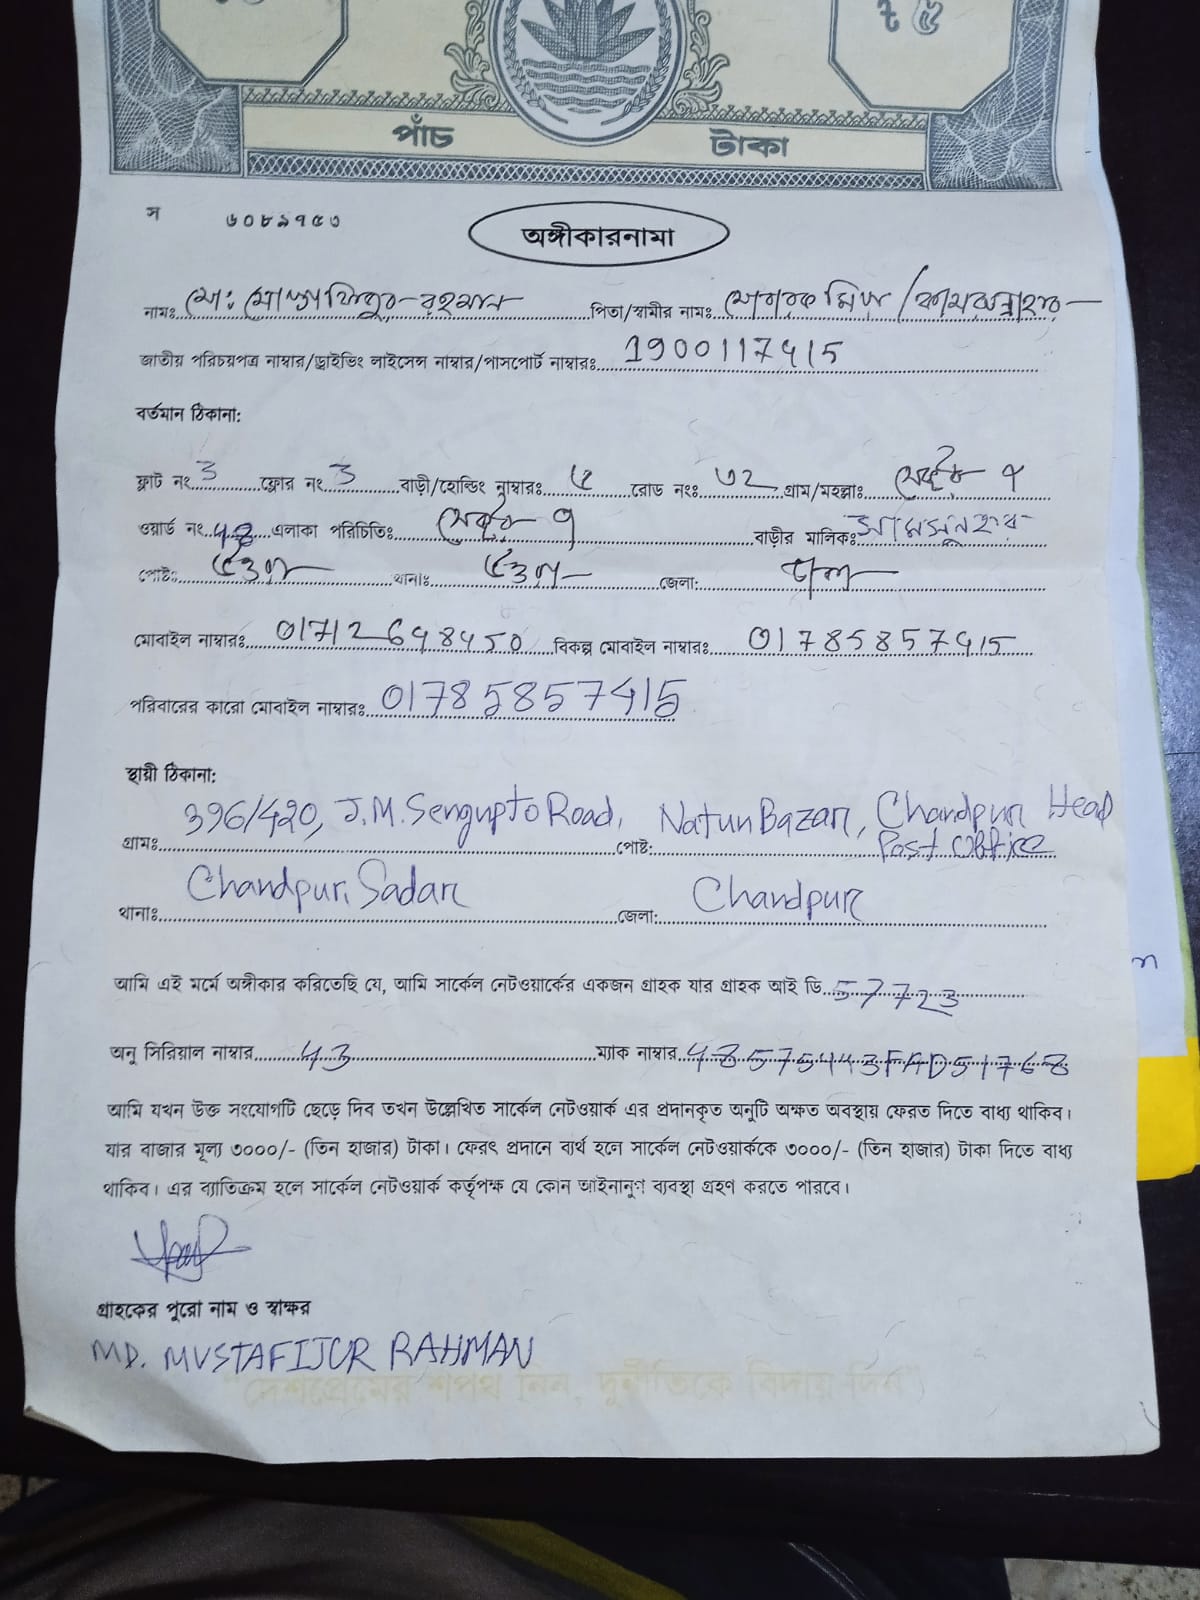 ৳ ৫
পাঁচ টাকা
স ৬০৮৯৭৫৩
অঙ্গীকারনামা
নামঃ মোঃ মোস্তাফিজুর রহমান পিতা/স্বামীর নামঃ মোবারক মিয়া / কামরুন্নাহার
জাতীয় পরিচয়পত্র নাম্বার/ড্রাইভিং লাইসেন্স নাম্বার/পাসপোর্ট নাম্বারঃ 1900117415
বর্তমান ঠিকানা:
ফ্লাট নং 3 ফ্লোর নং 3 বাড়ী/হোল্ডিং নাম্বারঃ ৫ রোড নংঃ ৩২ গ্রাম/মহল্লাঃ সেক্টর ৭
ওয়ার্ড নং এলাকা পরিচিতিঃ সেক্টর ৭ বাড়ীর মালিকঃ সামসুন্নাহার
পোষ্টঃ উত্তরা থানাঃ উত্তরা জেলা: ঢাকা
মোবাইল নাম্বারঃ 01712698450 বিকল্প মোবাইল নাম্বারঃ 01785857415
পরিবারের কারো মোবাইল নাম্বারঃ 01785857415
স্থায়ী ঠিকানা:
গ্রামঃ 396/420, J.M. Sengupto Road, পোষ্ট: Natun Bazar, Chandpur Head Post Office
থানাঃ Chandpur Sadar জেলা: Chandpur
আমি এই মর্মে অঙ্গীকার করিতেছি যে, আমি সার্কেল নেটওয়ার্কের একজন গ্রাহক যার গ্রাহক আই ডি 57723
অনু সিরিয়াল নাম্বার 43 ম্যাক নাম্বার 48575443FAD51768
আমি যখন উক্ত সংযোগটি ছেড়ে দিব তখন উল্লেখিত সার্কেল নেটওয়ার্ক এর প্রদানকৃত অনুটি অক্ষত অবস্থায় ফেরত দিতে বাধ্য থাকিব।
যার বাজার মূল্য ৩০০০/- (তিন হাজার) টাকা। ফেরৎ প্রদানে ব্যর্থ হলে সার্কেল নেটওয়ার্ককে ৩০০০/- (তিন হাজার) টাকা দিতে বাধ্য
থাকিব। এর ব্যাতিক্রম হলে সার্কেল নেটওয়ার্ক কর্তৃপক্ষ যে কোন আইনানুগ ব্যবস্থা গ্রহণ করতে পারবে।
গ্রাহকের পুরো নাম ও স্বাক্ষর
MD. MUSTAFIJUR RAHMAN
"দেশপ্রেমের শপথ নিন, দুর্নীতিকে বিদায় দিন"